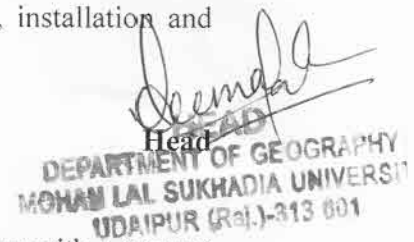 , installation and
HEAD
Head
DEPARTMENT OF GEOGRAPHY
MOHAN LAL SUKHADIA UNIVERSIT
UDAIPUR (Raj.)-313 001